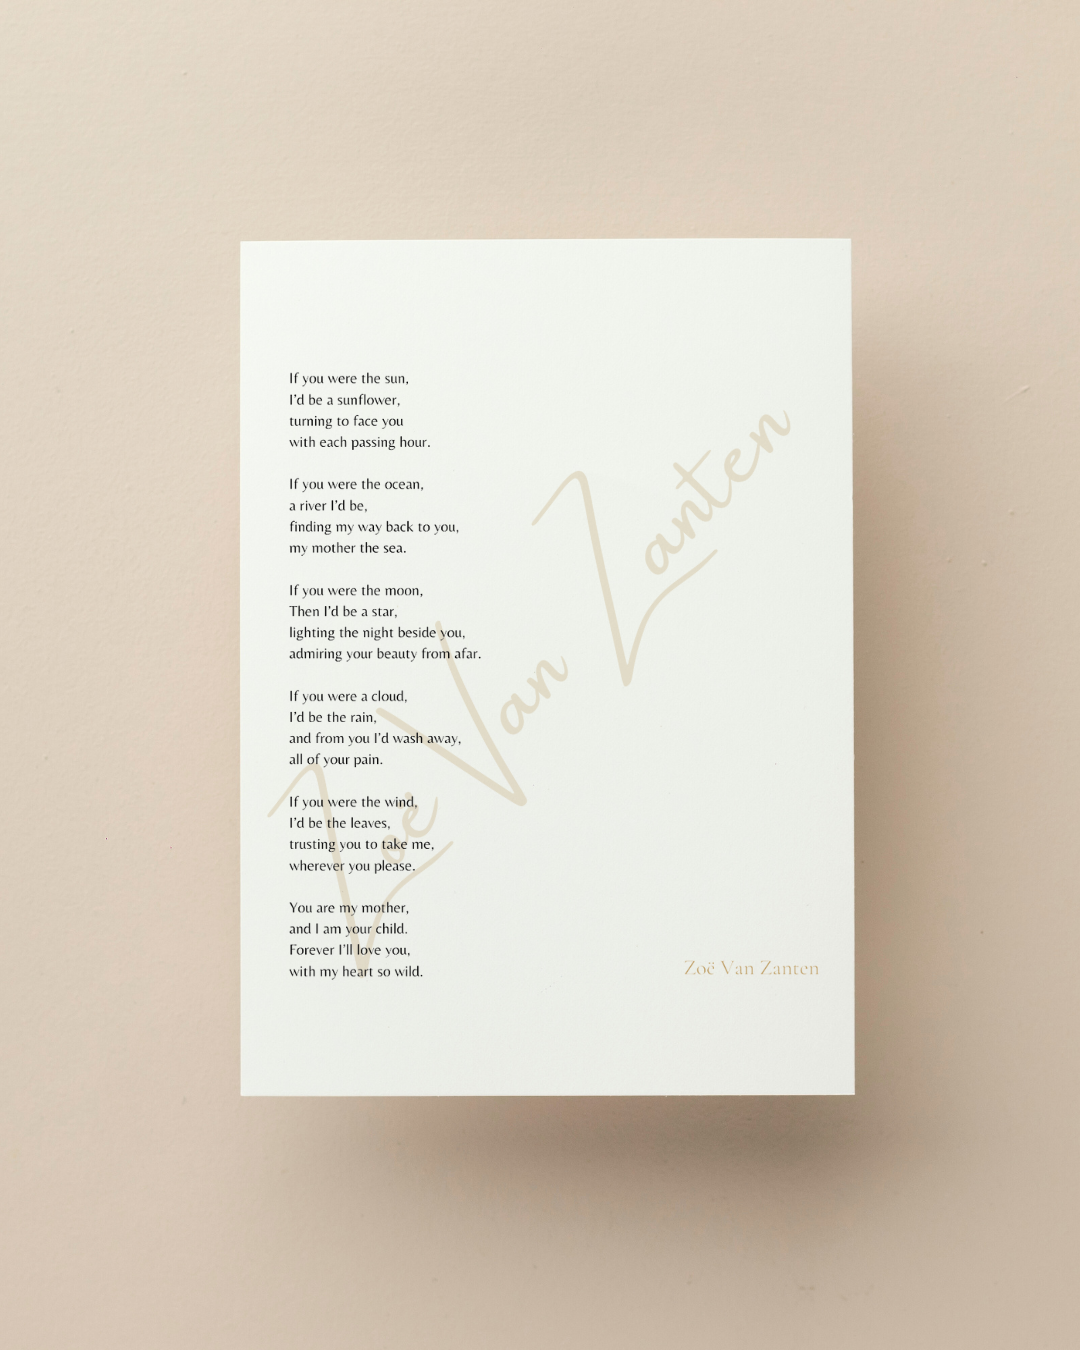 If you were the sun,
I'd be a sunflower,
turning to face you
with each passing hour.

If you were the ocean,
a river I'd be,
finding my way back to you,
my mother the sea.

If you were the moon,
Then I'd be a star,
lighting the night beside you,
admiring your beauty from afar.

If you were a cloud,
I'd be the rain,
and from you I'd wash away,
all of your pain.

If you were the wind,
I'd be the leaves,
trusting you to take me,
wherever you please.

You are my mother,
and I am your child.
Forever I'll love you,
with my heart so wild.

Zoë Van Zanten
Zoë Van Zanten